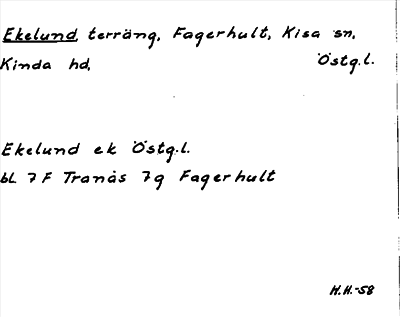 Ekelund, terräng, Fagerhult, Kisa sn,
Kinda hd, Östg.l.
Ekelund ek Östg.l.
bl 7F Tranås 7g Fagerhult
H.H.-58